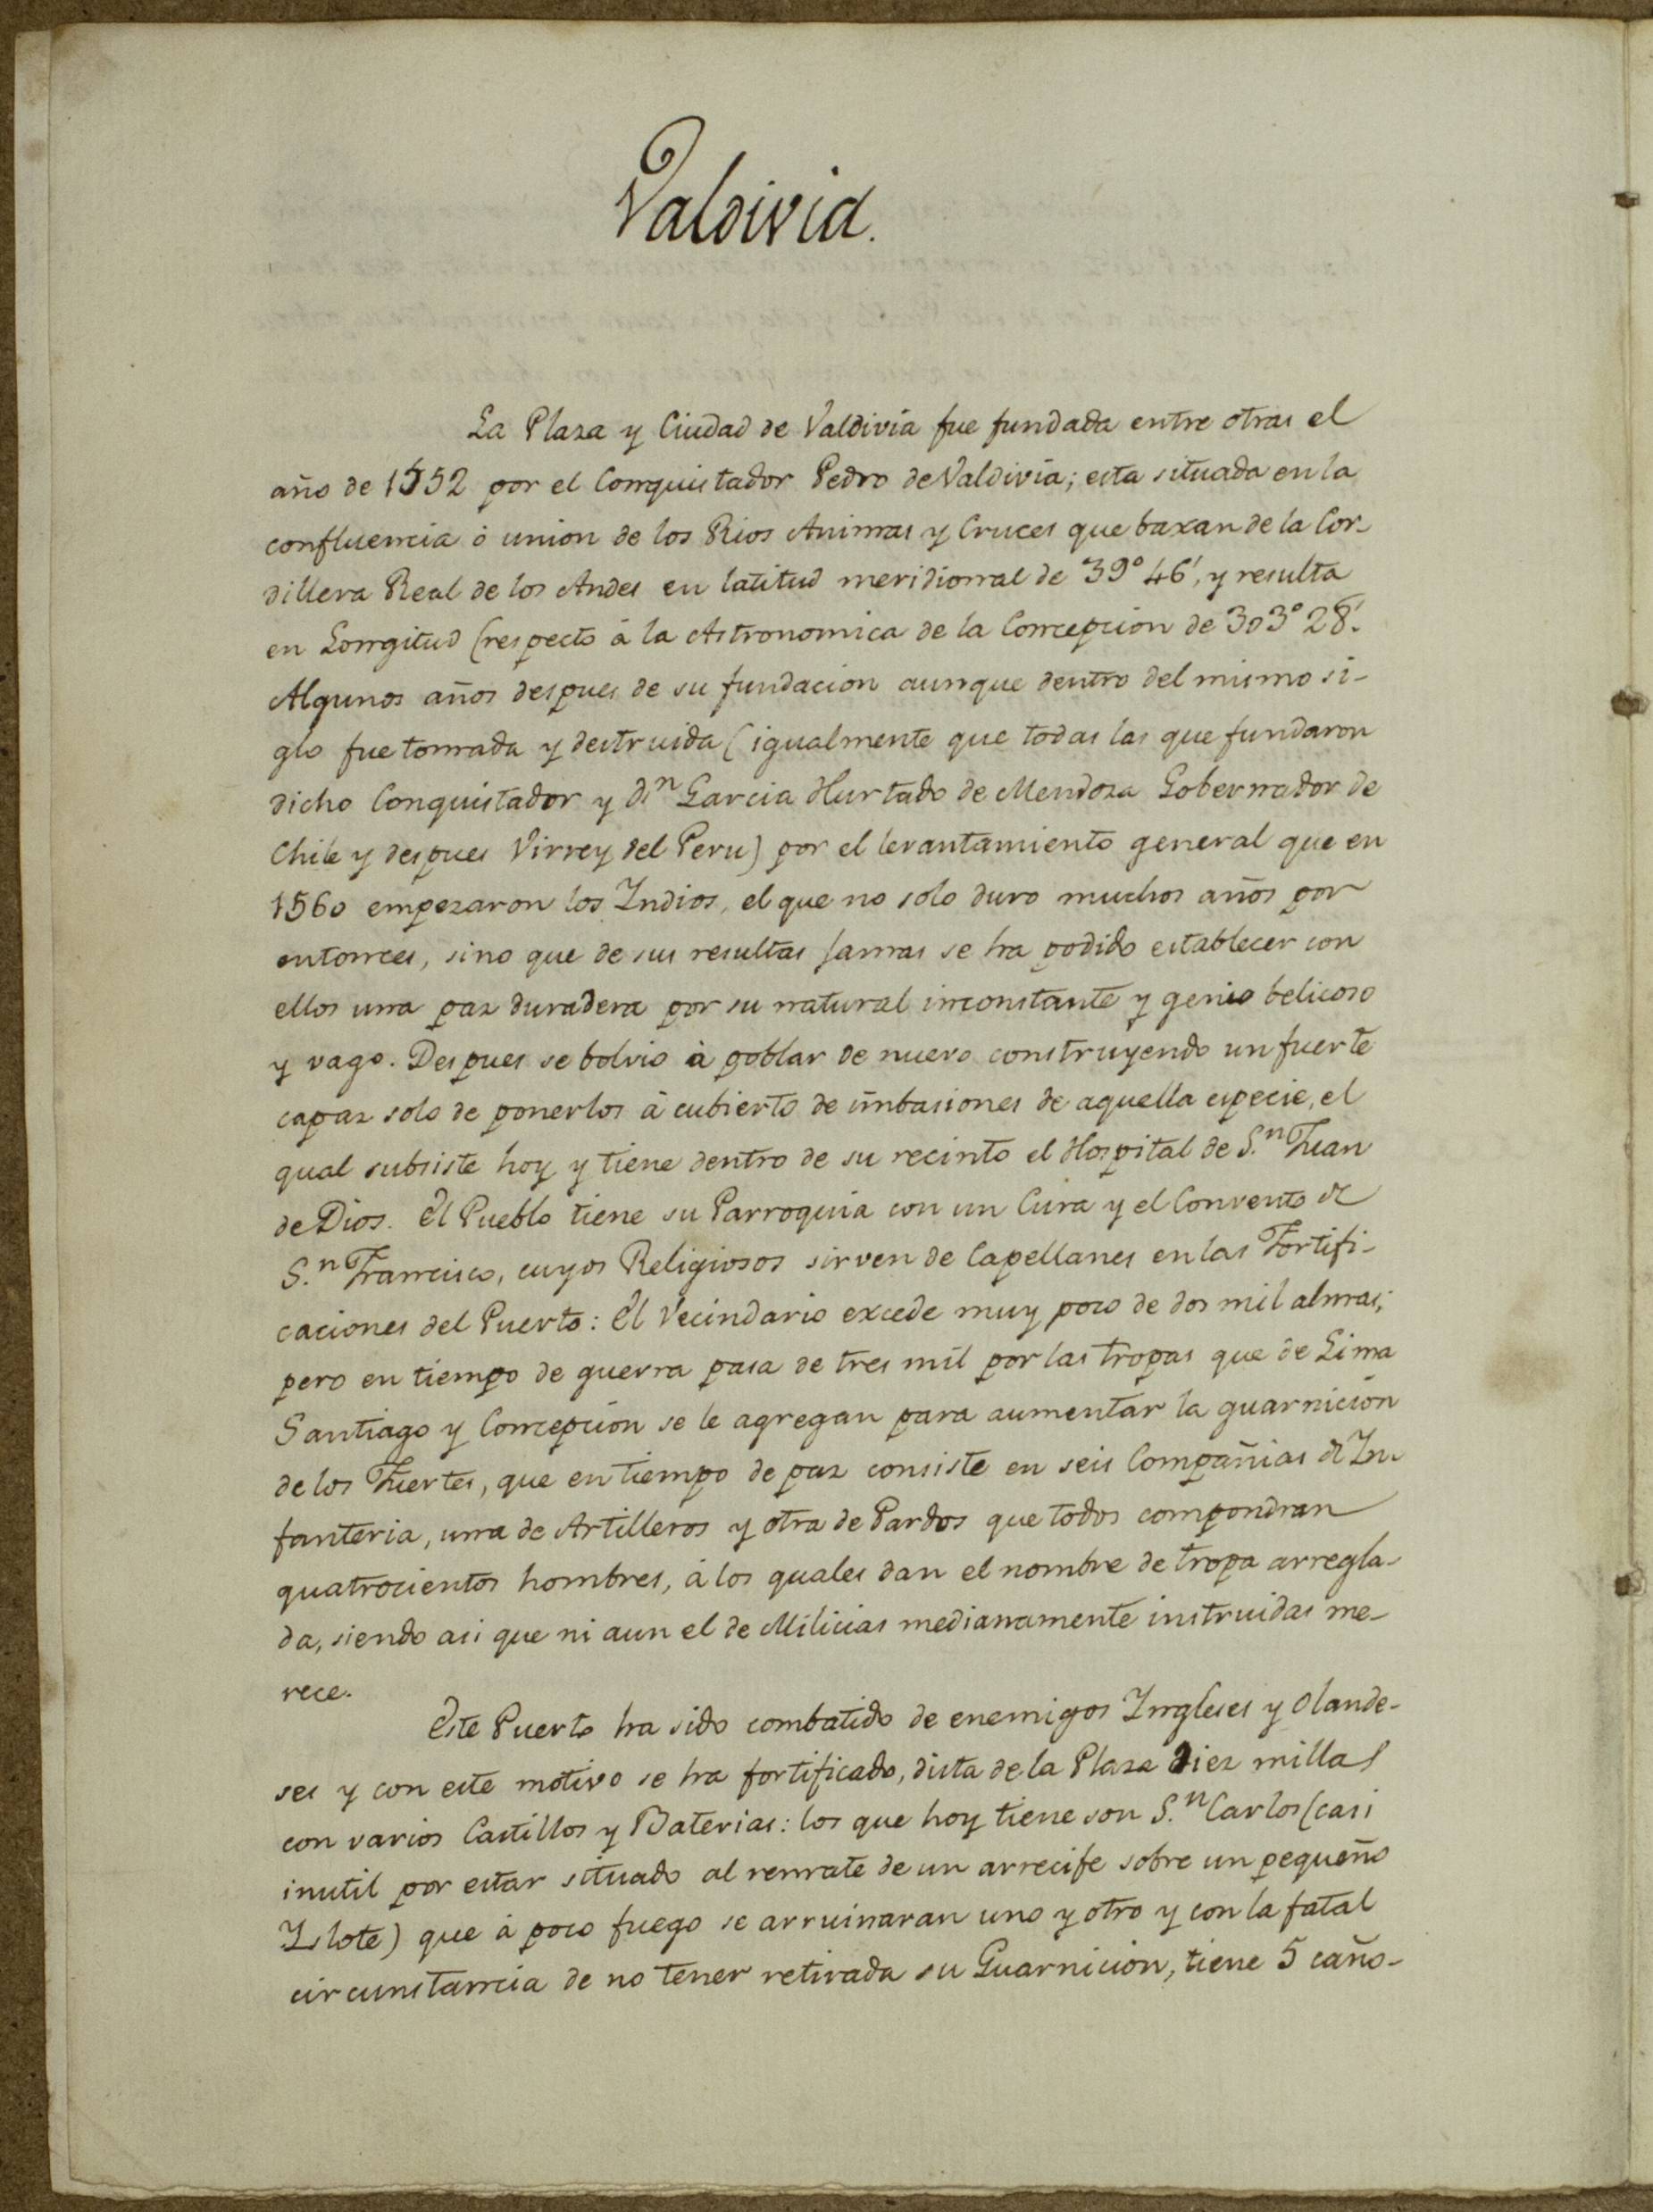 Valdivia.
La Plaza y Ciudad de Valdivia fue fundada entre otras el
año de 1552 por el Conquistador Pedro de Valdivia; esta situada en la
confluencia ó union de los Rios Animas y Cruces que baxan de la Cor-
dillera Real de los Andes en latitud meridional de 39° 46', y resulta
en Longitud (respecto á la Astronomica de la Concepcion de 303° 28'.
Algunos años despues de su fundacion aunque dentro del mismo si-
glo fue tomada y destruida (igualmente que todas las que fundaron
dicho Conquistador y Dn Garcia Hurtado de Mendoza Gobernador de
Chile y despues Virrey del Peru) por el levantamiento general que en
1560 empezaron los Indios, el que no solo duro muchos años por
entonces, sino que de sus resultas jamas se ha podido establecer con
ellos una paz duradera por su natural inconstante y genio belicoso
y vago. Despues se bolvio à poblar de nuevo construyendo un fuerte
capaz solo de ponerlos á cubierto de imbasiones de aquella especie, el
qual subsiste hoy y tiene dentro de su recinto el Hospital de S.n Juan
de Dios. El Pueblo tiene su Parroquia con un Cura y el Convento de
S.n Francisco, cuyos Religiosos sirven de Capellanes en las Fortifi-
caciones del Puerto: El Vecindario excede muy poco de dos mil almas;
pero en tiempo de guerra pasa de tres mil por las tropas que de Lima
Santiago y Concepcion se le agregan para aumentar la guarnicion
de los Fuertes, que en tiempo de paz consiste en seis Compañias de In-
fanteria, una de Artilleros y otra de Pardos que todos compondran
quatrocientos hombres, á los quales dan el nombre de tropa arregla-
da, siendo asi que ni aun el de Milicias medianamente instruidas me-
rece.
Este Puerto ha sido combatido de enemigos Ingleses y Olande-
ses y con este motivo se ha fortificado, dista de la Plaza diez millas
con varios Castillos y Baterias: los que hoy tiene son S.n Carlos (casi
inutil por estar situado al remate de un arrecife sobre un pequeño
Islote) que á poco fuego se arruinaran uno y otro y con la fatal
circunstancia de no tener retirada su Guarnicion, tiene 5 caño-